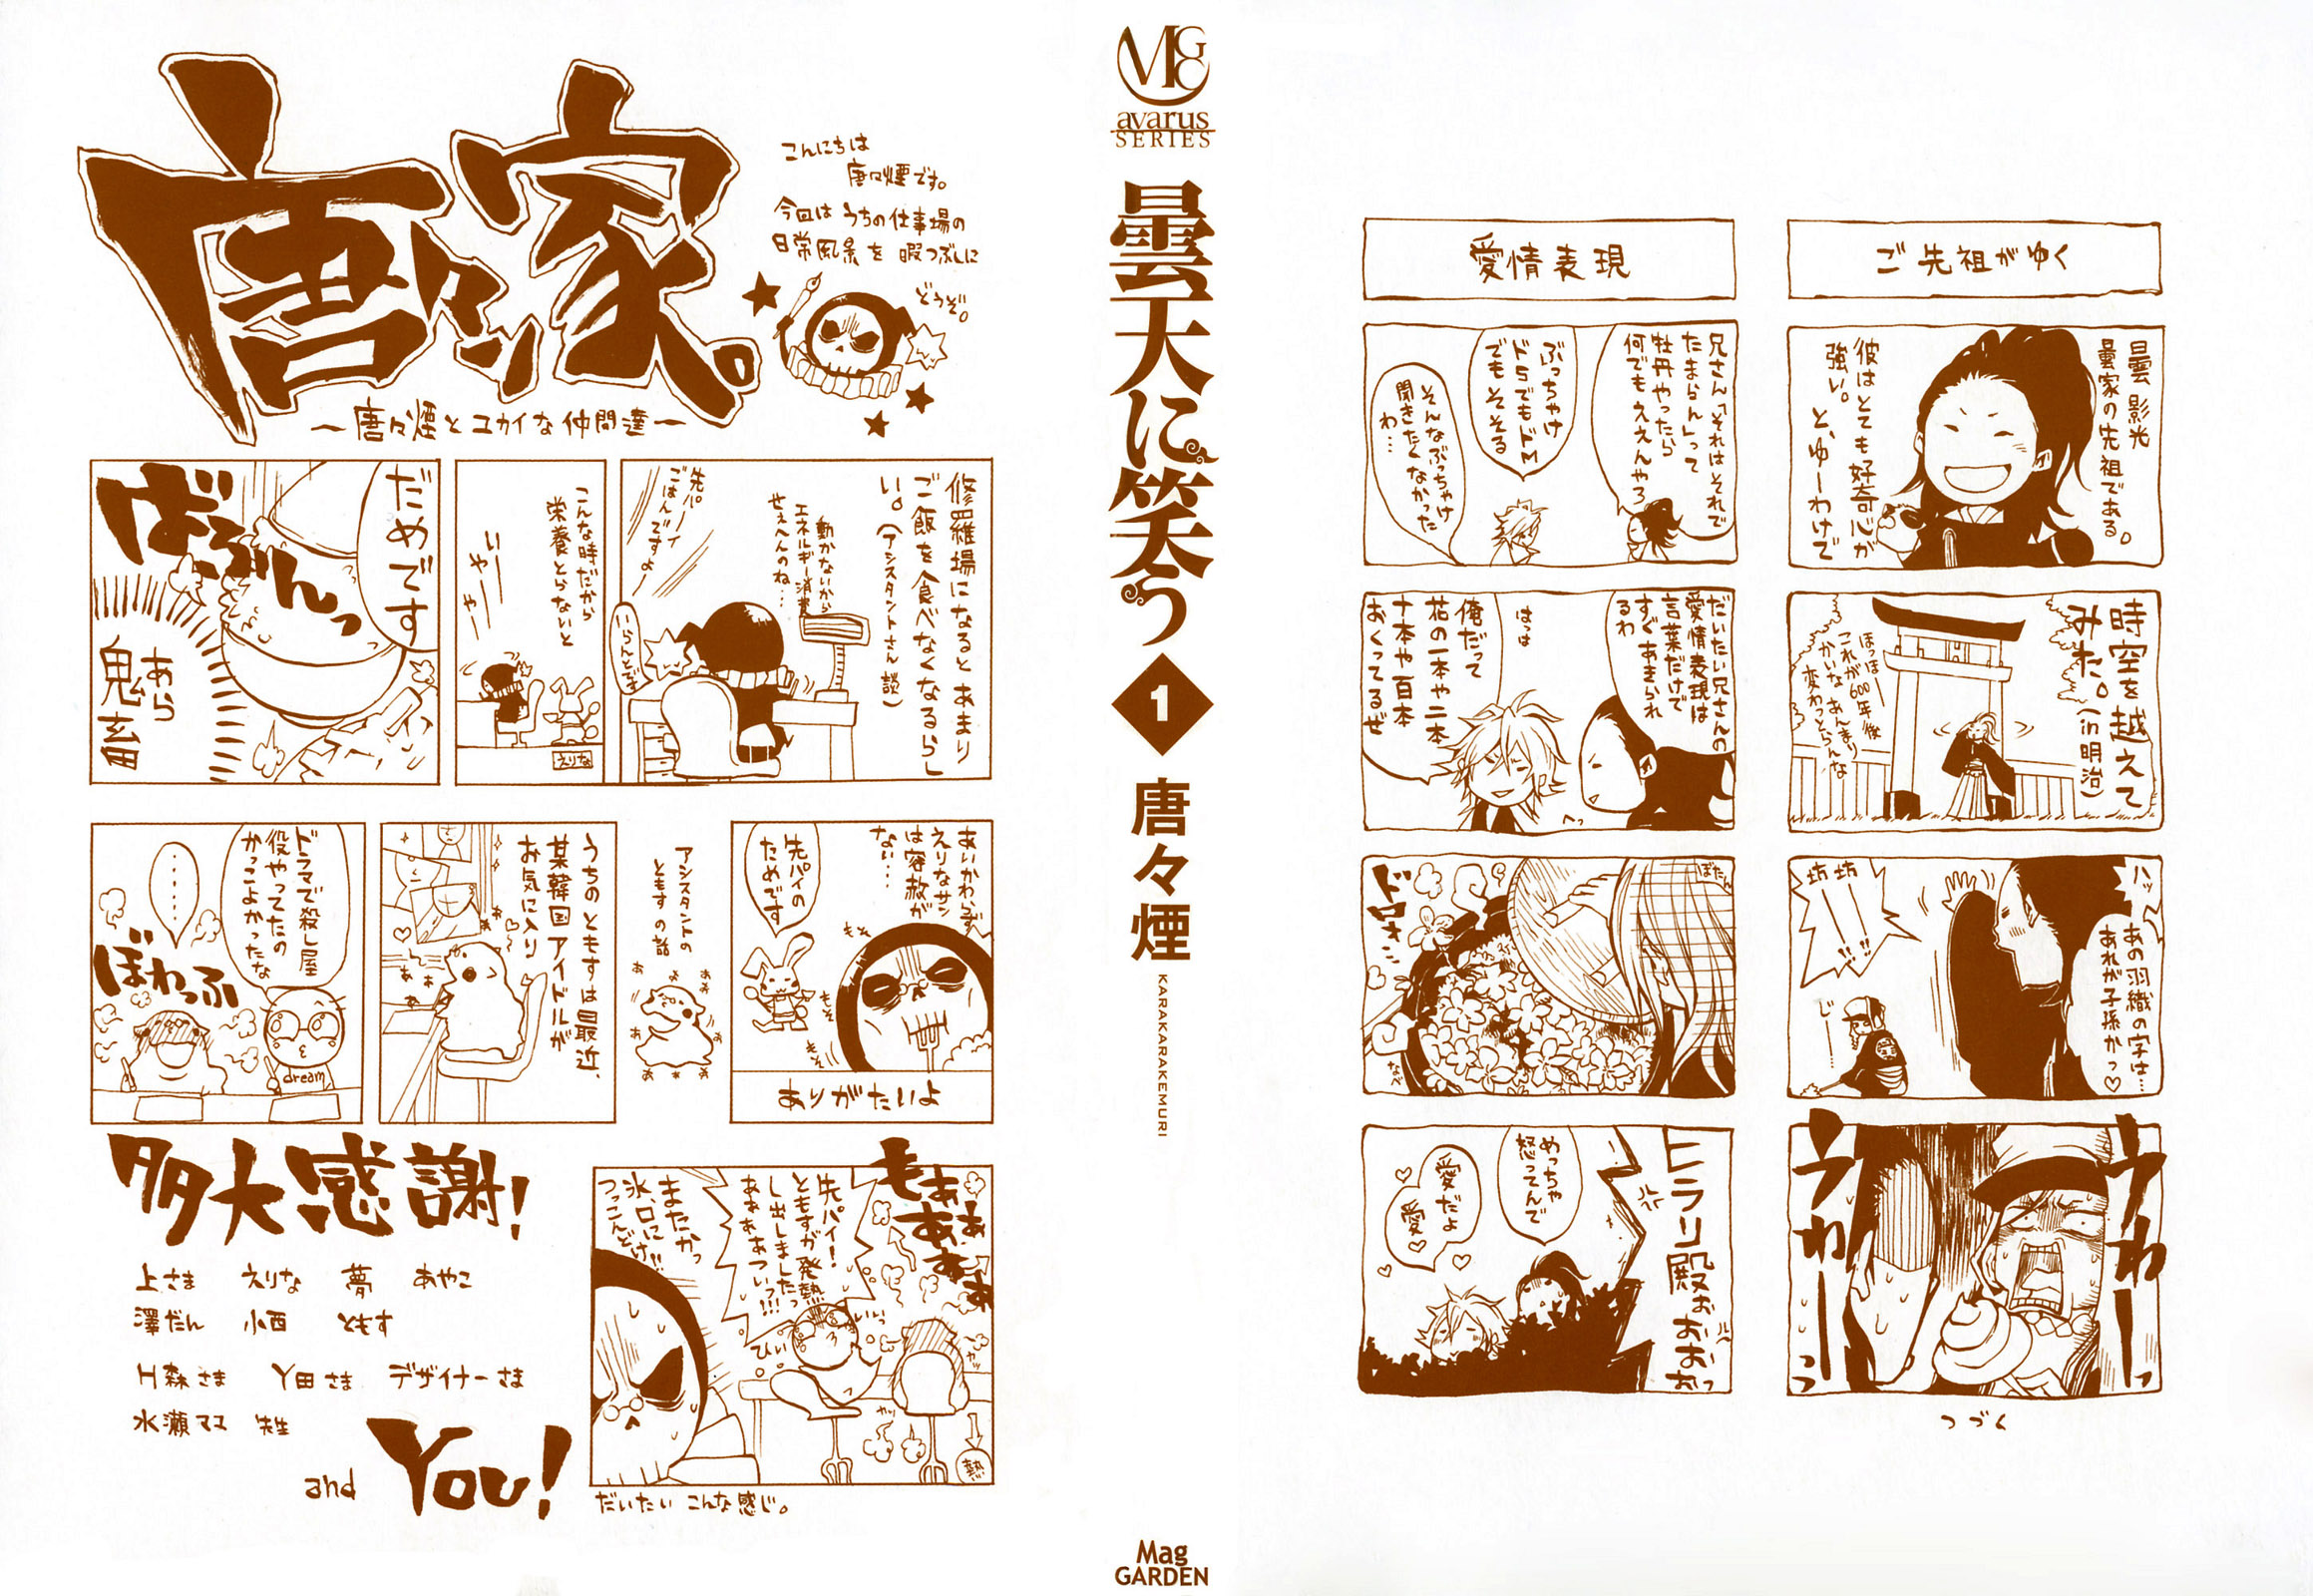 唐々家。
〜唐々煙とユカイな仲間達〜
こんにちは
唐々煙です。
今回は うちの仕事場の
日常風景を 暇つぶしに
どうぞ。
修羅場になるとあまり
ご飯を食べなくなるらし
い。(アシスタントさん談)
動かないから
エネルギー消費
せぇへんのね…
先パーイ
ごはんですよー
いらんとです
こんな時だから
栄養とらないと
いーやーやー
えりな
だめです
ばふんっ
あら
鬼畜
あいかわらず
えりなサン
は容赦が
ない…
先パイの
ためです
もそ
もそ
もそ
ありがたいよ
アシスタントの
ともすの話
うちのともすは最近、
某韓国アイドルが
お気に入り
ドラマで殺し屋
役やってたの
かっこよかったな
……
ぼわっふ
dream
もぁぁぁぁぁぁ
先パイ!
ともすが発熱
し出しましたっ
あぁぁああつぃっ!!!
またかっ
氷、口に
つっこんどけ!!
ひぃ
熱
だいたい こんな感じ。
多大感謝!
上さま えりな 夢 あやこ
澤だん 小西 ともす
H森さま Y田さま デザイナーさま
水瀬ママ 先生
and You!
MGC
avarus
SERIES
曇天に笑う
1
唐々煙
KARAKARAKEMURI
Mag
GARDEN
ご先祖がゆく
曇 影光
曇家の先祖である。
彼はとても好奇心が
強い。
と、ゆーわけで
時空を越えて
みた。(in明治)
ほっほー
これが600年後
かいな あんまり
変わっとらんな
ハッ
あの羽織の字は…
あれが子孫かっ♡
坊坊——!!
じー…
うわーっ
うわーっ
つづく
愛情表現
兄さん「それはそれで
たまらん」って
牡丹やったら
何でもええんやろ
ぶっちゃけ
ドSでもドM
でもそそる
そんなぶっちゃけ
聞きたくなかった
わ…
だいたい兄さんの
愛情表現は
言葉だけで
すぐあきられ
るわ
はっは
俺だって
花の一本や二本
十本や百本
おくってるぜ
へっ
ぼたん
ドロォ…
なべ
ヒラリ殿ぉぉおおおっ
めっちゃ
怒ってんで
愛だよ
愛